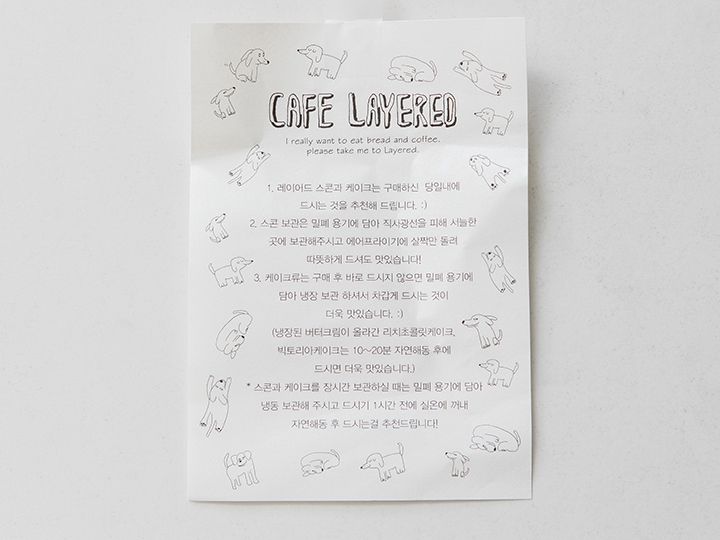 CAFE LAYERED
I really want to eat bread and coffee,
please take me to Layered.
1. 레이어드 스콘과 케이크는 구매하신 당일내에
드시는 것을 추천해 드립니다. :)
2. 스콘 보관은 밀폐 용기에 담아 직사광선을 피해 서늘한
곳에 보관해주시고 에어프라이기에 살짝만 돌려
따뜻하게 드셔도 맛있습니다!
3. 케이크류는 구매 후 바로 드시지 않으면 밀폐 용기에
담아 냉장 보관 하셔서 차갑게 드시는 것이
더욱 맛있습니다. :)
(냉장된 버터크림이 올라간 리치초콜릿케이크,
빅토리아케이크는 10~20분 자연해동 후에
드시면 더욱 맛있습니다.)
* 스콘과 케이크를 장시간 보관하실 때는 밀폐 용기에 담아
냉동 보관해 주시고 드시기 1시간 전에 실온에 꺼내
자연해동 후 드시는걸 추천드립니다!